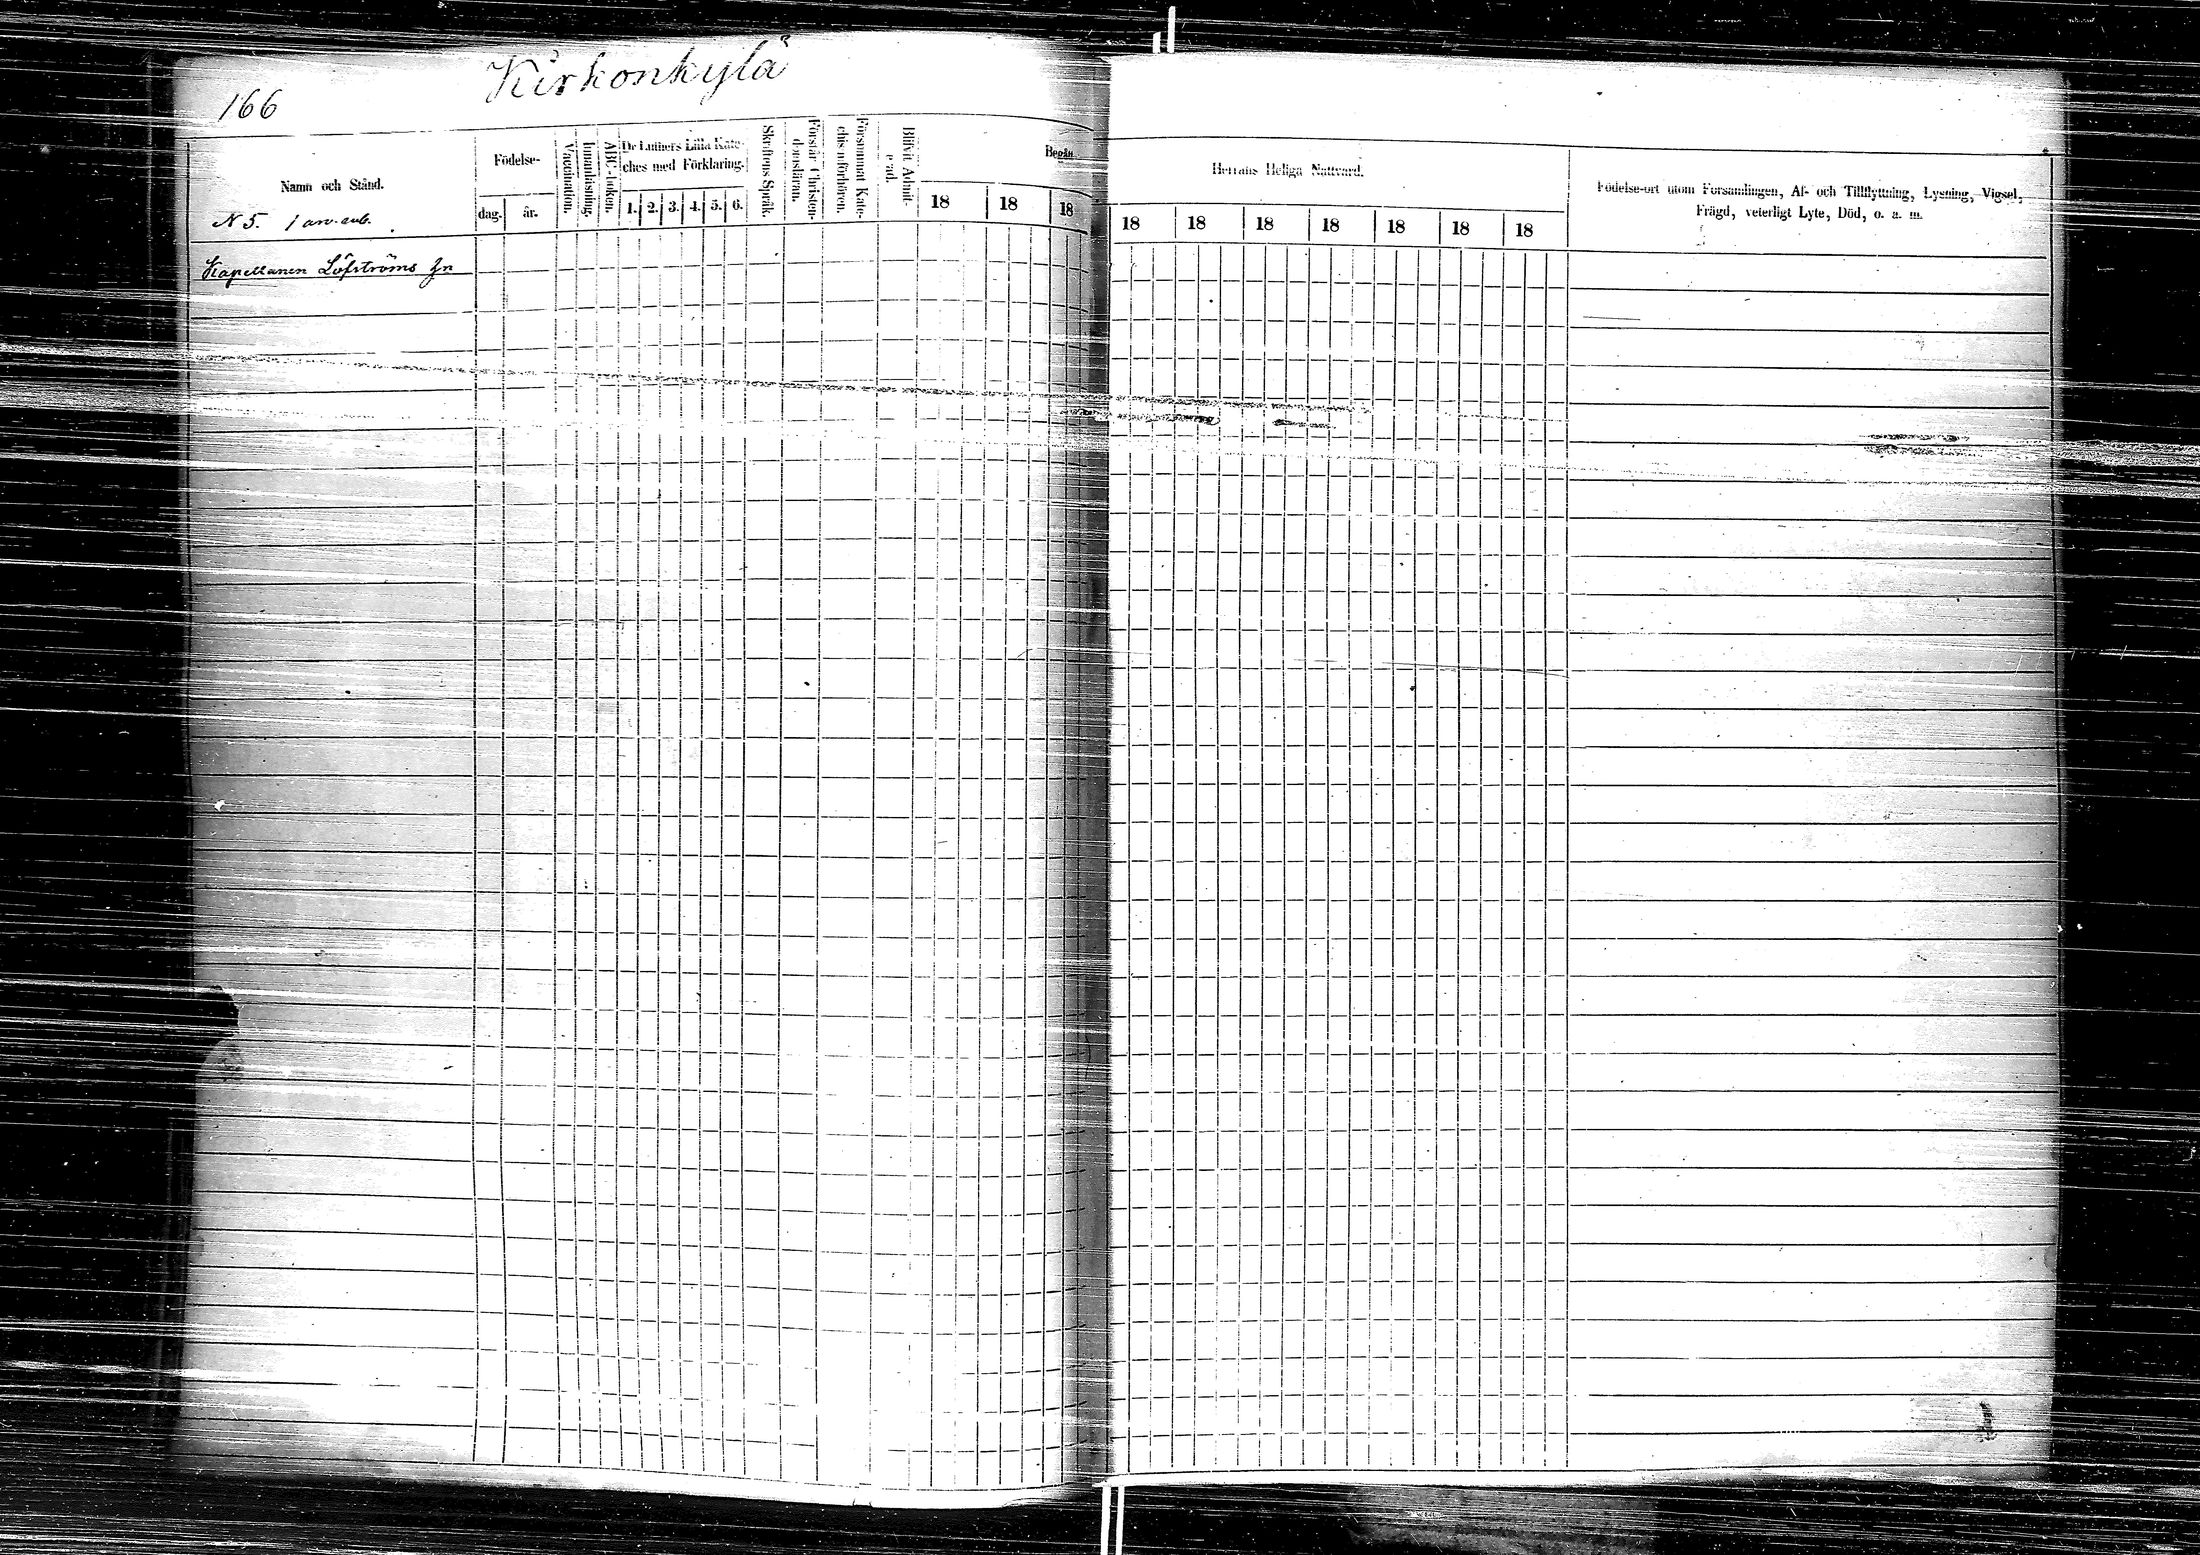 166
Kirkonkylä
Namn och Stånd.
N 5.
Födelse-
dag.
år.
Vaccination.
Innanläsning.
ABC-boken.
Dr Luthers Lilla Kate-
ches med Förklaring.
1. 2. 3. 4. 5. 6.
Skriftens Språk.
Förstår Christen-
domsläran.
Försummat Kate-
chismiförhören.
Blifvit Admit-
terad.
Begått
18 18 18
Kapellanen Löfströms
Herrans Heliga Nattvard.
18 18 18 18 18 18 18
Födelse-ort utom Församlingen, Af- och Tillflyttning, Lysning, Vigsel,
Frägd, veterligt Lyte, Död, o. a. m.